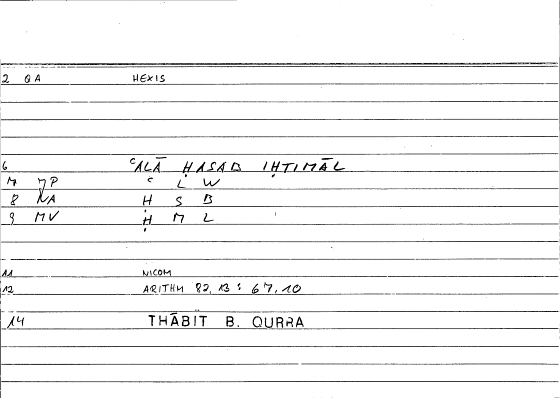 2 QA HEXIS
6 ʿALĀ ḤASAB IḤTIMĀL
7 JP ʿ L W
8 NA Ḥ S B
9 MV Ḥ M L
11 NICOM
12 ARITHM 82,13 : 67,10
14 THĀBIT B. QURRA